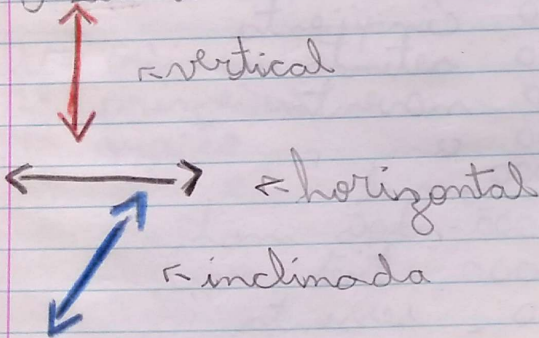 vertical
horizontal
inclinada